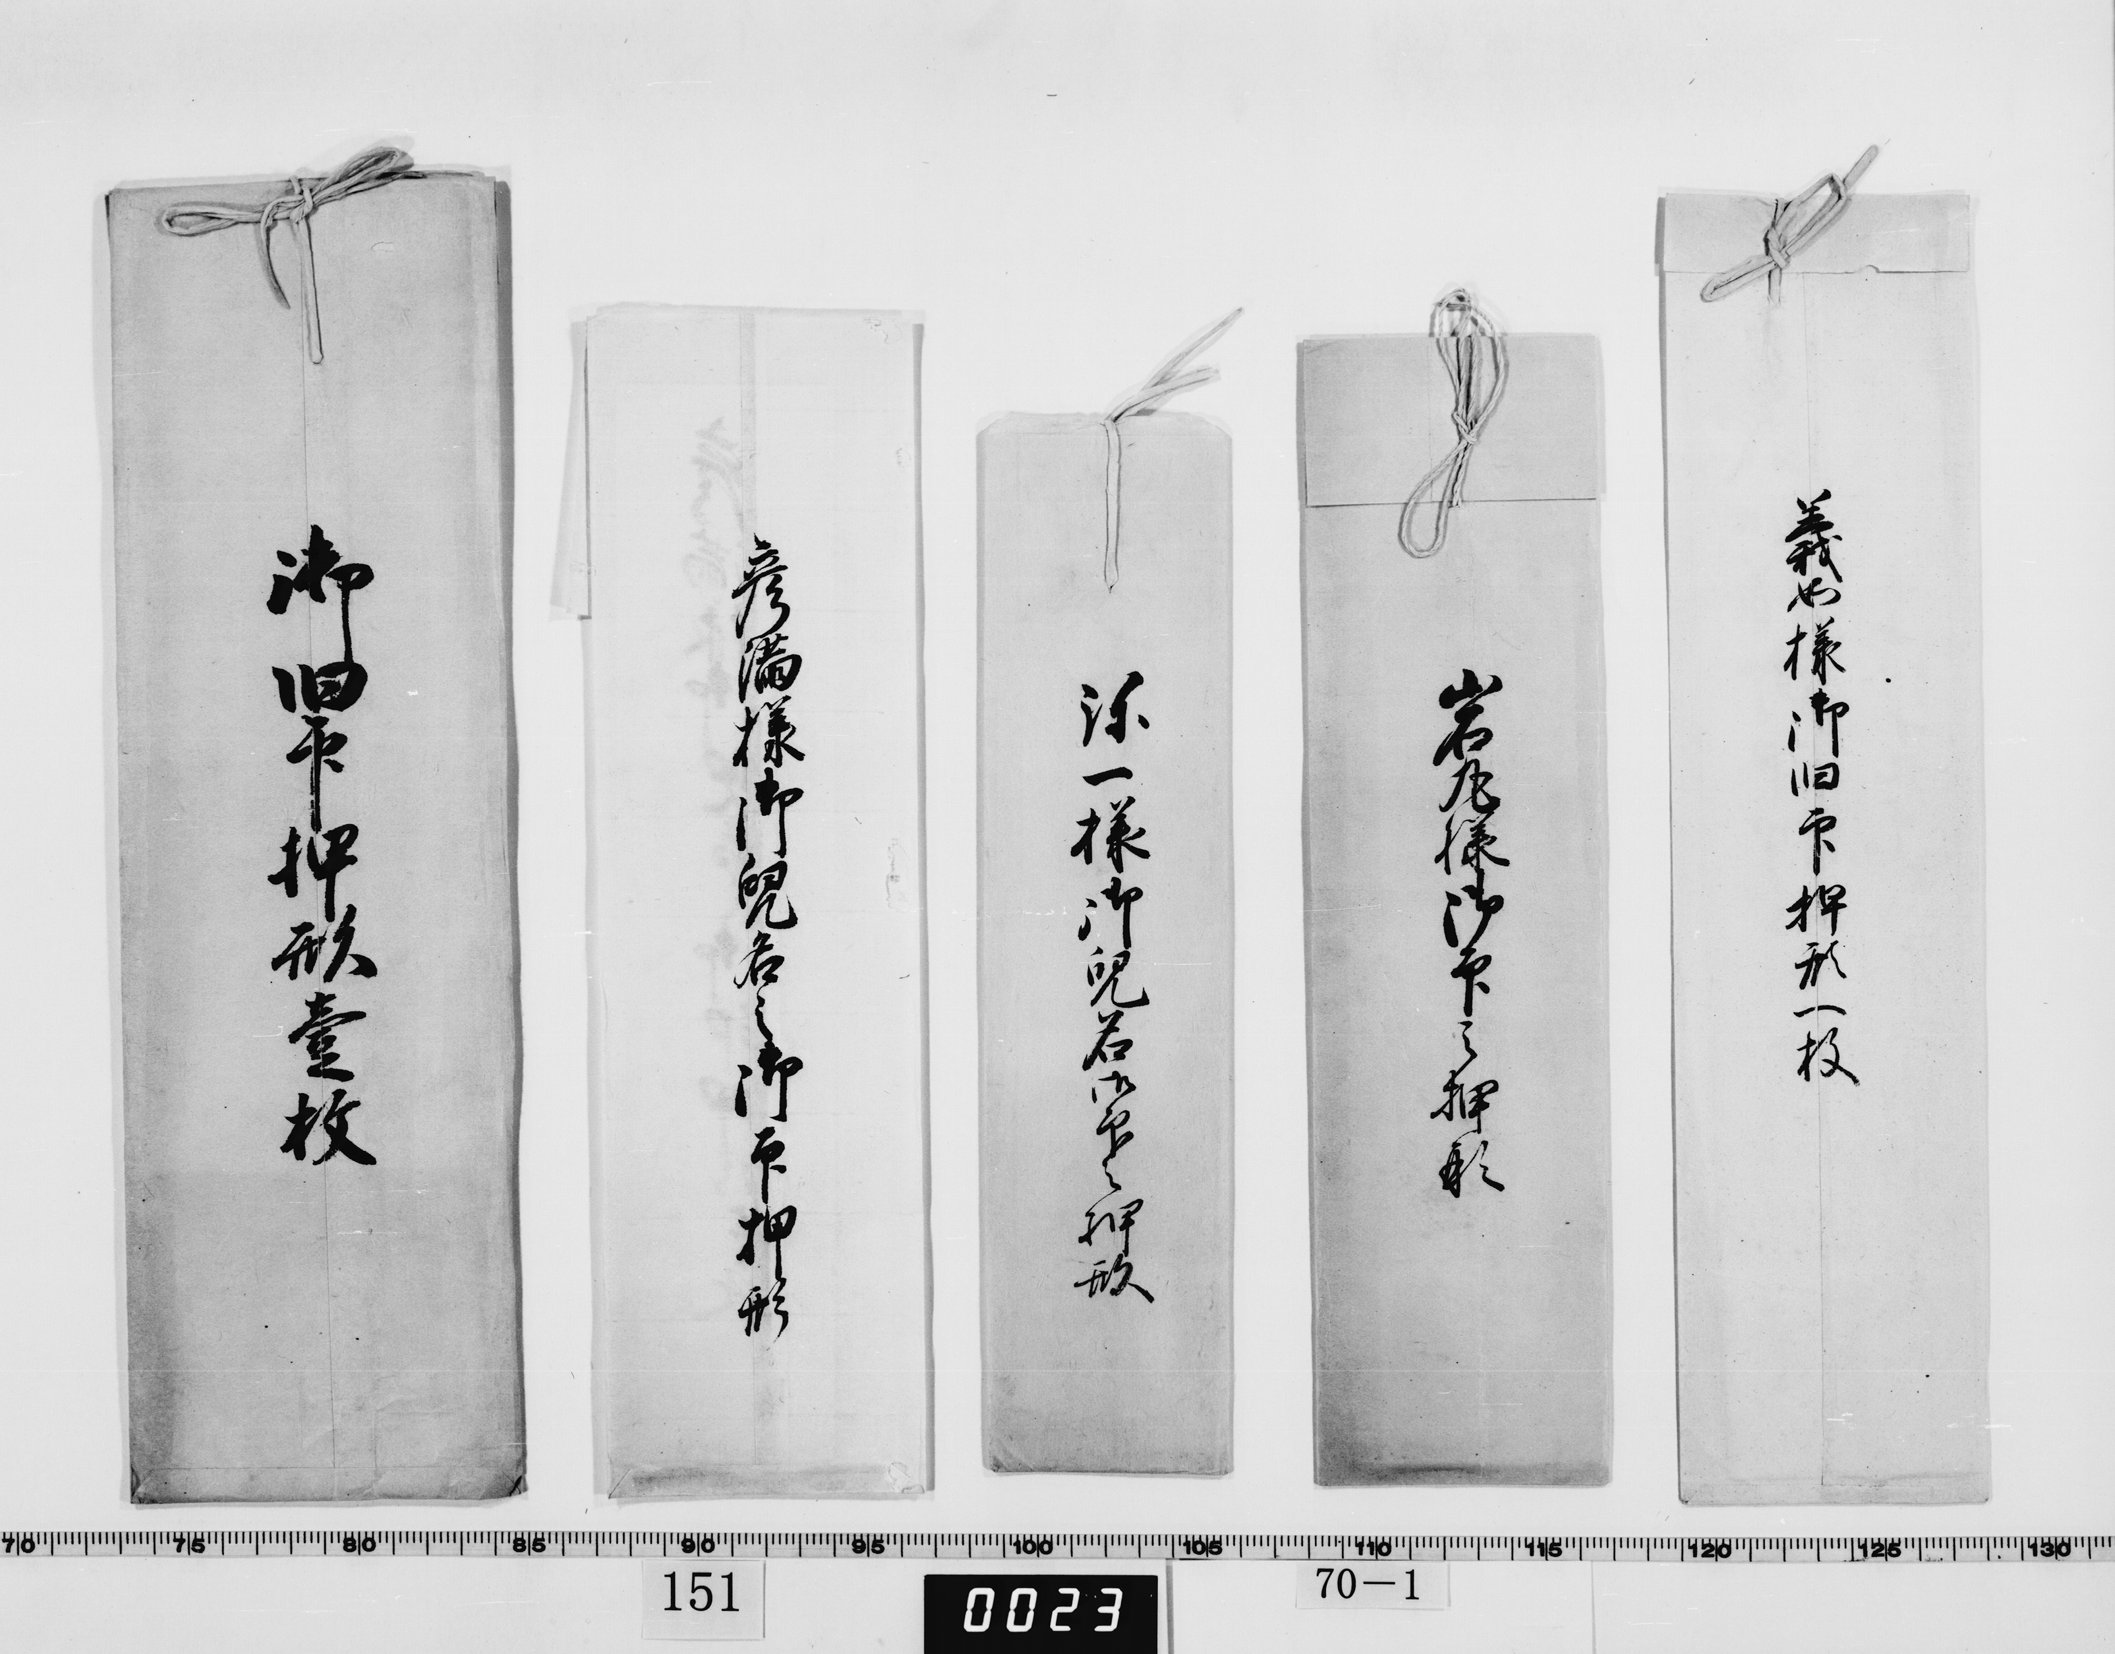 義如様御旧印押形一枚
岩丸様御印之押形
弥一様御兒名御印之押形
彦満様御兒名之御印押形
御旧印押形壹枚
70 75 80 85 90 95 100 105 110 115 120 125 130
151
0023
70-1